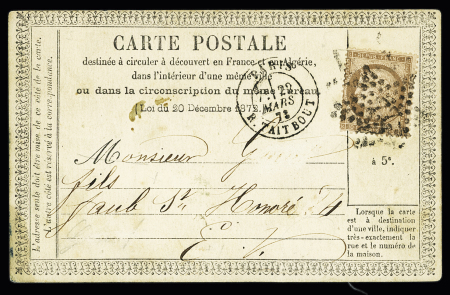 CARTE POSTALE
destinée à circuler à découvert en France et en Algérie,
dans l'intérieur d'une même ville
ou dans la circonscription du même bureau.
(Loi du 20 Décembre 1872.)
PARIS
R. TAITBOUT
29
MARS
73
à 5c.
Monsieur
fils
Faub St Honoré
E. V.
Lorsque la carte
est à destination
d'une ville, indiquer
très-exactement la
rue et le numéro de
la maison.
L'adresse seule doit être mise de ce côté de la carte.
L'autre côté est réservé à la correspondance.